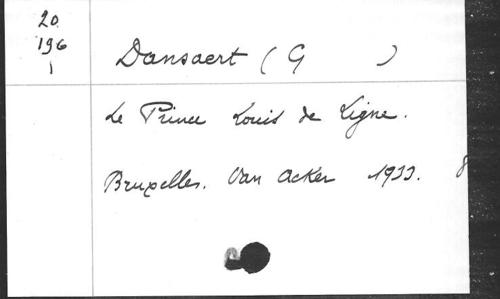 20
196
1
Dansaert ( G )
Le Prince Louis de Ligne.
Bruxelles. Van Acker 1933. 8